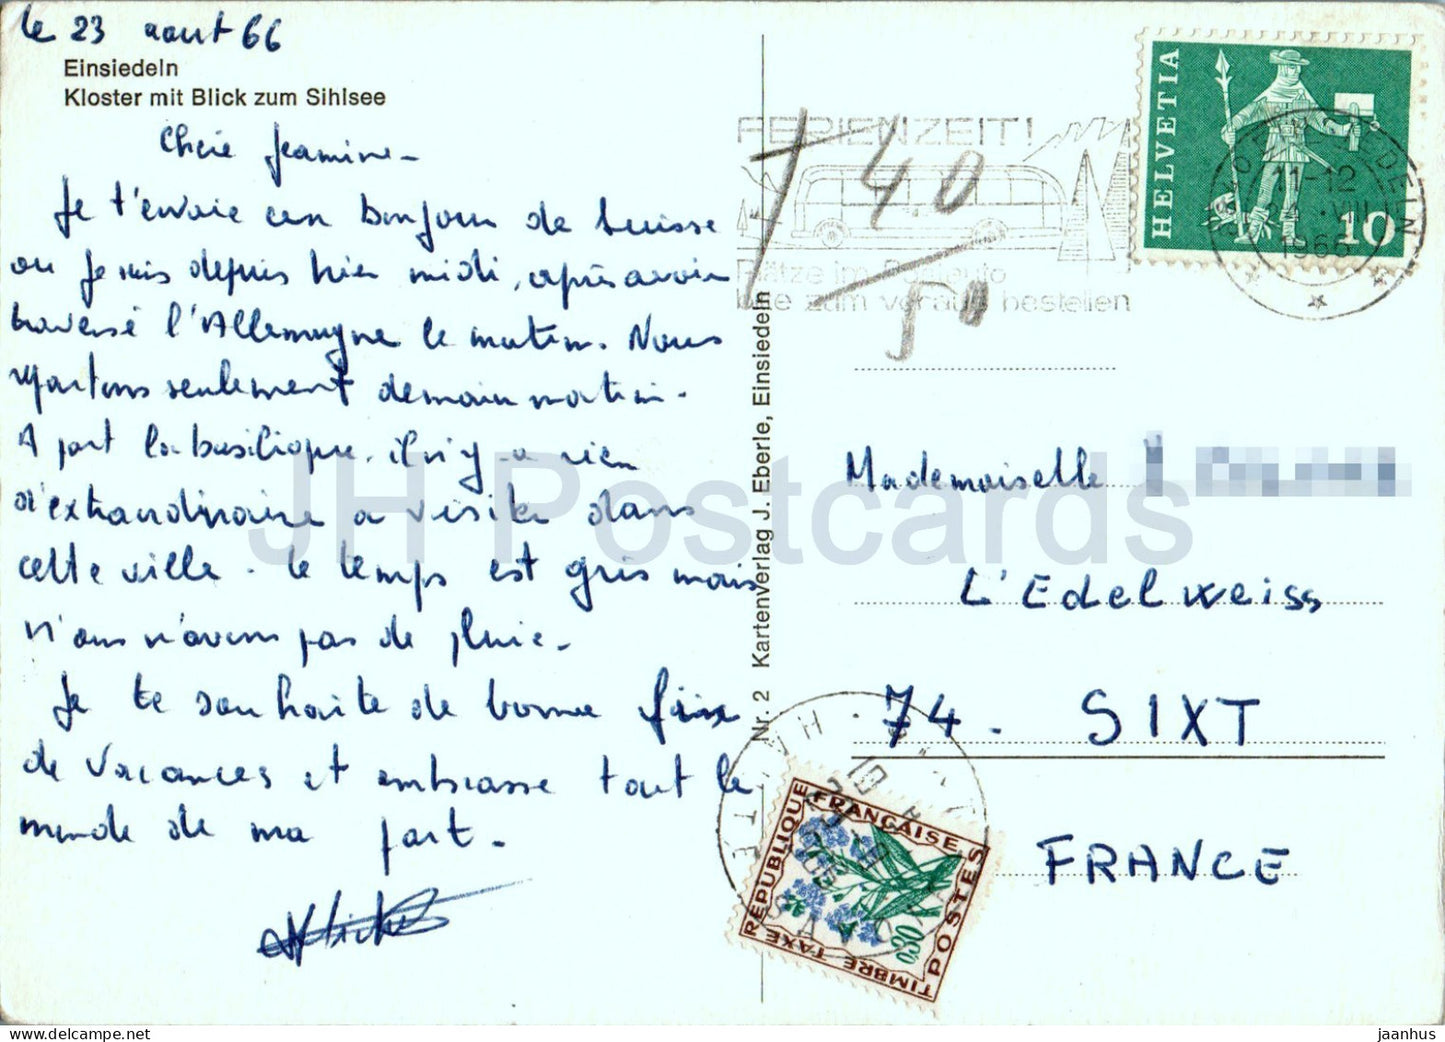 le 23 aout 66
Einsiedeln
Kloster mit Blick zum Sihlsee
Chère Jeannine -
Je t'envoie un bonjour de Suisse
où je suis depuis hier midi, après avoir
traversé l'Allemagne le matin. Nous
repartons seulement demain matin.
A part la basilique, il n'y a rien
d'extraordinaire a visiter dans
cette ville. Le temps est gris mais
n'avons pas de pluie.
Je te souhaite de bonne fin
de vacances et embrasse tout le
monde de ma part.
Nr. 2 Kartenverlag J. Eberle, Einsiedeln
FERIENZEIT!
Plätze im Postauto
bitte zum voraus bestellen
T 40
50
HELVETIA
10
EINSIEDELN
11-12
24.VIII
1966
Mademoiselle
L'Edelweiss
74 - SIXT
FRANCE
REPUBLIQUE FRANÇAISE
POSTES
TIMBRE TAXE
0,30
HTE SAVOIE
JH Postcards
delcampe.net
jaanhus